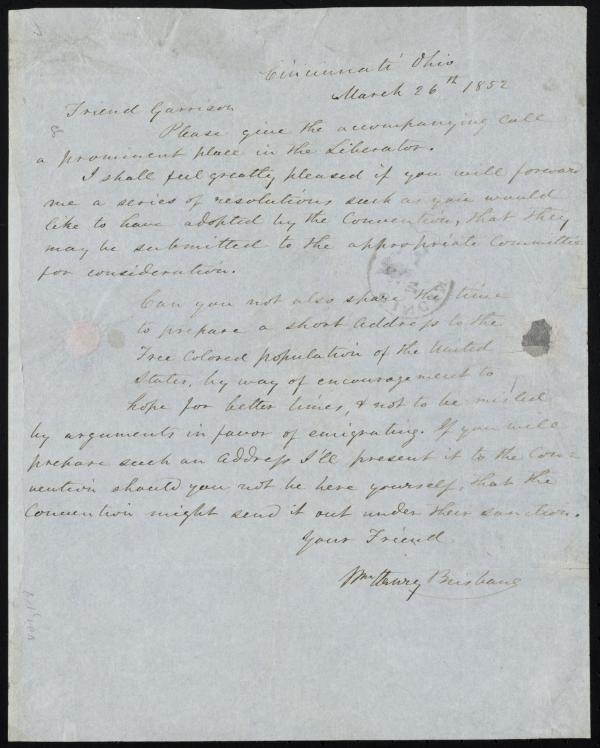 Cincinnati Ohio
March 26th 1852
Friend Garrison
Please give the accompanying Call
a prominent place in the Liberator.
I shall feel greatly pleased if you will forward
me a series of resolutions such as you would
like to have adopted by the Convention, that they
may be submitted to the appropriate Committee
for consideration.
Can you not also spare the time
to prepare a short Address to the
Free Colored population of the United
States, by way of encouragement to
hope for better times, & not to be misled
by arguments in favor of emigrating. If you will
prepare such an Address I'll present it to the Con-
vention should you not be here yourself, that the
Convention might send it out under their sanction.
Your Friend
Wm Henry Brisbane